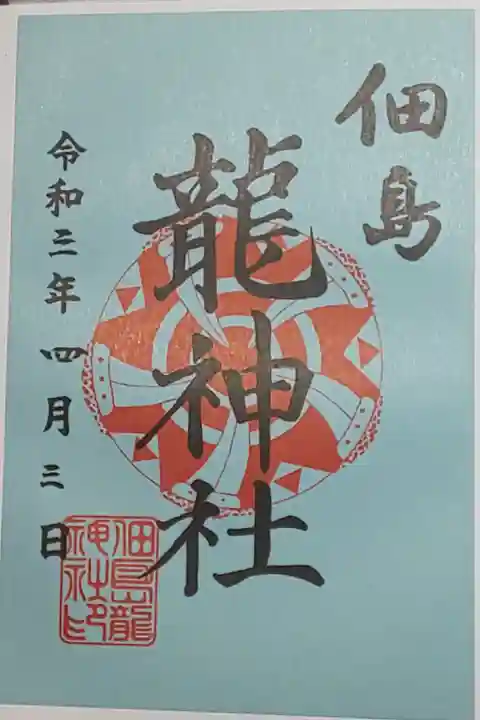 佃島
龍神社
令和三年四月三日
佃島龍
神社印